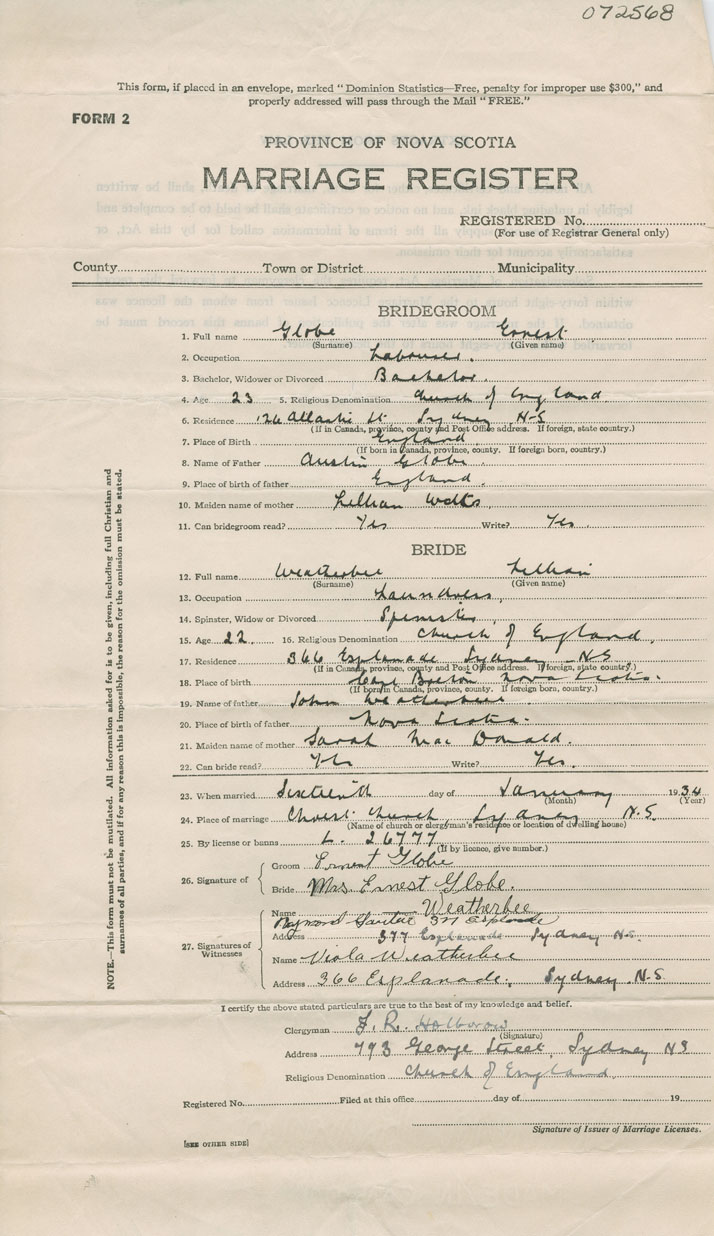 072568
This form, if placed in an envelope, marked "Dominion Statistics—Free, penalty for improper use $300," and
properly addressed will pass through the Mail "FREE."
FORM 2
PROVINCE OF NOVA SCOTIA
MARRIAGE REGISTER
REGISTERED No.
(For use of Registrar General only)
County Town or District Municipality
BRIDEGROOM
1. Full name Globe Ernest
(Surname) (Given name)
2. Occupation Labourer.
3. Bachelor, Widower or Divorced Bachelor.
4. Age 23 5. Religious Denomination Church of England
6. Residence 126 Atlantic St. Sydney N.S.
(If in Canada, province, county and Post Office address. If foreign, state country.)
7. Place of Birth England
(If born in Canada, province, county. If foreign born, country.)
8. Name of Father Austin Globe
9. Place of birth of father England
10. Maiden name of mother Lillian Watts
11. Can bridegroom read? Yes Write? Yes.
BRIDE
12. Full name Weatherbee Lillian
(Surname) (Given name)
13. Occupation Laundress.
14. Spinster, Widow or Divorced Spinster.
15. Age 22. 16. Religious Denomination Church of England.
17. Residence 366 Esplanade Sydney N.S.
(If in Canada, province, county and Post Office address. If foreign, state country.)
18. Place of birth Cape Breton Nova Scotia.
(If born in Canada, province, county. If foreign born, country.)
19. Name of father John Weatherbee
20. Place of birth of father Nova Scotia.
21. Maiden name of mother Sarah MacDonald.
22. Can bride read? Yes Write? Yes.
23. When married Sixteenth day of January 1934
(Month) (Year)
24. Place of marriage Christ Church, Sydney N.S.
(Name of church or clergyman's residence or location of dwelling house)
25. By license or banns L. 26777
(If by licence, give number.)
26. Signature of Groom Ernest Globe
Bride Mrs. Ernest Globe.
27. Signatures of Witnesses
Name Weatherbee
Raymond 377 Esplanade
Address 377 Esplanade Sydney N.S.
Name Viola Weatherbee
Address 366 Esplanade, Sydney N.S.
I certify the above stated particulars are true to the best of my knowledge and belief.
Clergyman F. R. Holbrow
(Signature)
Address 793 George Street, Sydney N.S.
Religious Denomination Church of England
Registered No. Filed at this office day of 19
Signature of Issuer of Marriage Licenses.
[SEE OTHER SIDE]
NOTE.—This form must not be mutilated. All information asked for is to be given, including full Christian and
surnames of all parties, and if for any reason this is impossible, the reason for the omission must be stated.